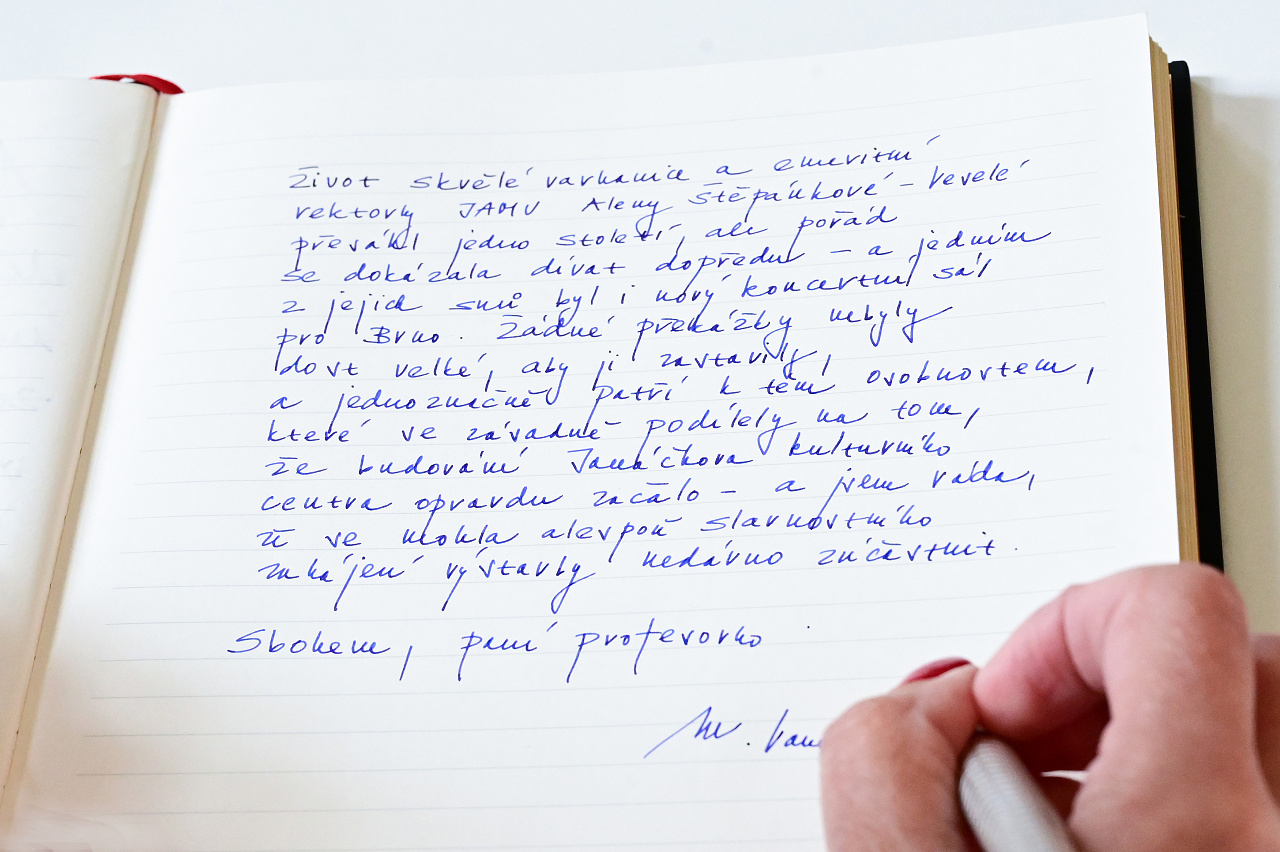 Život skvělé varhanice a emeritní
rektorky JAMU Aleny Štěpánkové-Veselé
přesáhl jedno století, ale pořád
se dokázala dívat dopředu - a jedním
z jejich snů byl i nový koncertní sál
pro Brno. Žádné překážky nebyly
dost velké, aby ji zastavily,
a jednoznačně patří k těm osobnostem,
které se zásadně podílely na tom,
že budování Janáčkova kulturního
centra opravdu začalo - a jsem ráda,
že se mohla alespoň slavnostního
zahájení výstavby nedávno zúčastnit.
Sbohem, paní profesorko